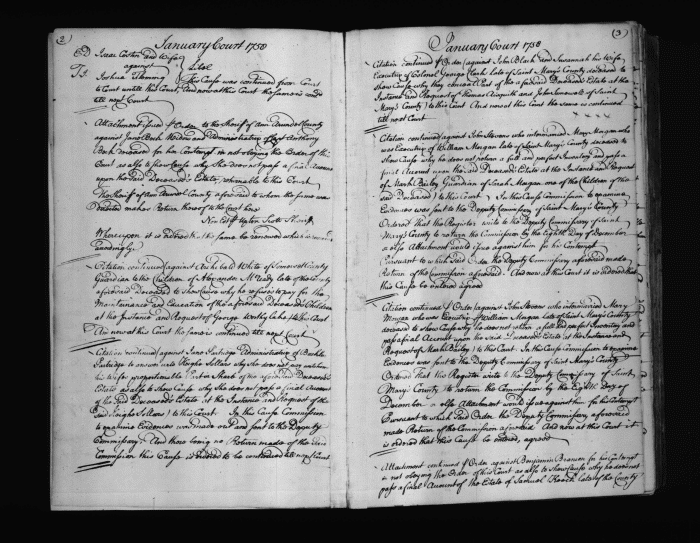 2
January Court 1758
Isaac Costen and Wife
against Libel
Joshua Fleming This Cause was continued from Court
to Court untill this Court, And now at this Court the same is contd
till next Court
Attachment issued Order to the Sheriff of Ann Arundel County
against Jane Beck Widow and Administratrix of Anthony
Beck deceased for her Contempt in not obeying the Order of this
Court as also to shew Cause why She does not pass a final Account
upon the said Deceased's Estate, returnable to this Court
The Sheriff of Ann Arundel County aforesaid to whom the same was
directed makes Return thereof to the Court here
Non Est Upton Scott Sheriff
Whereupon it is ordered that the same be renewed which is renewed
accordingly
Citation continued against Archibald White of Somerset County
Guardian to the Children of Alexander late of the County
aforesaid Deceased to Shew Cause why he refuses to pay for the
Maintainance and Education of the aforesaid Deceased's Children
at the Instance and Request of George to this Court
And now at this Court the same is continued till next Court
Citation continued against Jane Administratrix of
to answer unto Hugh Sollers why She does not pay unto him
his Wifes proportionable Part or Share of the aforesaid Deceased's
Estate as also to Shew Cause why She does not pass a final Account
of the said Deceased's Estate at the Instance and Request of the
said Hugh Sollers to this Court. In this Cause Commission
to examine Evidences was made out and sent to the Deputy
Commissary. And there being no Return made of the said
Commission this Cause is ordered to be continued till next Court
3
January Court 1758
Citation continued Order against John Black and Susannah his Wife
Executrix of Colonel George Clark late of Saint Mary's County deceased to
shew Cause why they do not pass a final Account of the said Deceased's Estate at the
Instance and Request of Thomas and John of Saint
Mary's County to this Court And now at this Court the same is continued
till next Court
Citation continued against John Stevens who intermarried Mary Morgan who
was Executrix of William Morgan late of Saint Mary's County deceased to
Shew Cause why he does not return a full and perfect Inventory and pass a
final Account upon the said Deceased's Estate at the Instance and Request
of Mark Bailey Guardian of Sarah Morgan one of the Children of the
said Deceased to this Court. In this Cause Commission to examine
Evidences was sent to the Deputy Commissary of Saint Mary's County
Ordered that the Register write to the Deputy Commissary of Saint
Mary's County to return the Commission by the Eighth Day of December
or else Attachment would issue against him for his Contempt
Pursuant to which said Order the Deputy Commissary aforesaid made
Return of the Commission aforesaid. And now at this Court it is ordered that
this Cause be entered agreed
Citation continued Order against John Stevens who intermarried Mary
Morgan who was Executrix of William Morgan late of Saint Mary's County
deceased to Shew Cause why he does not return a full and perfect Inventory and
pass a final Account upon the said Deceased's Estate at the Instance and
Request of Mark Bailey to this Court. In this Cause Commission to examine
Evidences was sent to the Deputy Commissary of Saint Mary's County
Ordered That the Register write to the Deputy Commissary of Saint
Mary's County to return the Commission by the Eighth Day of
December or else Attachment would issue against him for his Contempt
Pursuant to which said Order the Deputy Commissary aforesaid
made Return of the Commission aforesaid. And now at this Court it
is ordered that this Cause be entered, agreed
Attachment continued Order against Benjamin for his Contempt
in not obeying the Order of this Court as also to Shew Cause why he does not
pass a final Account of the Estate of Samuel late of the County